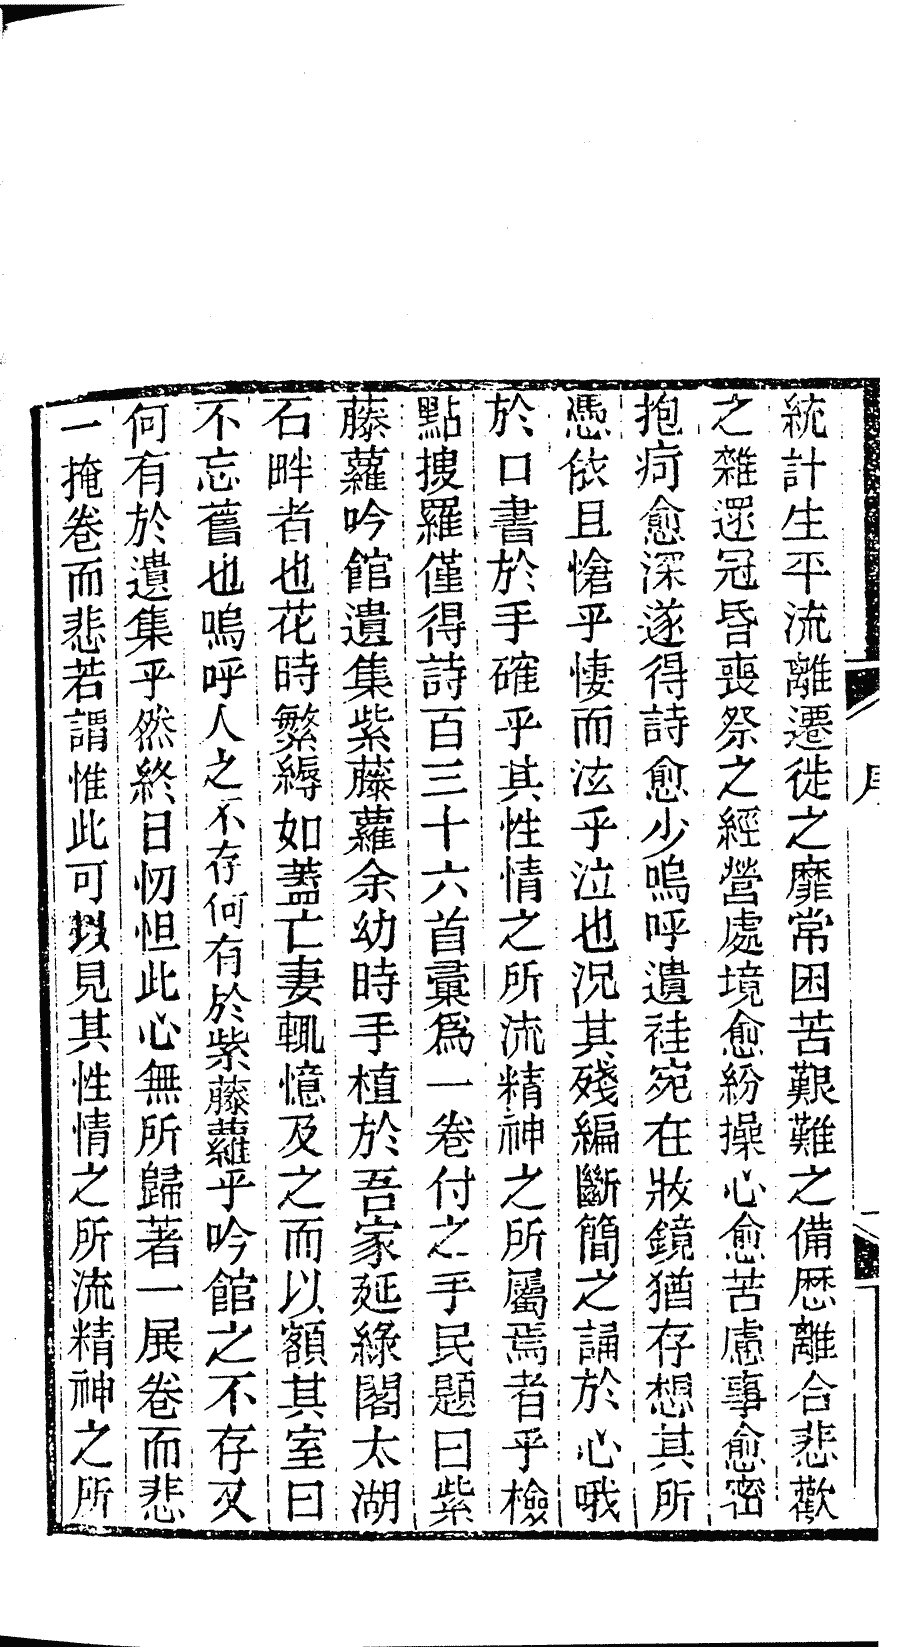 統計生平流離遷徙之靡常困苦艱難之備歴離合悲歡
之雜還冠昏喪祭之經營處境愈紛操心愈苦慮事愈密
抱疴愈深遂得詩愈少嗚呼遺袿宛在妝鏡猶存想其所
憑依且愴乎悽而泫乎泣也況其殘編斷簡之誦於心哦
於口書於手確乎其性情之所流精神之所屬焉者乎檢
點搜羅僅得詩百三十六首彙爲一卷付之手民題曰紫
藤蘿吟館遺集紫藤蘿余幼時手植於吾家延綠閣太湖
石畔者也花時繁縟如蓋亡妻輒憶及之而以額其室曰
不忘舊也嗚呼人之不存何有於紫藤蘿乎吟館之不存又
何有於遺集乎然終日忉怛此心無所歸著一展卷而悲
一掩卷而悲若謂惟此可以見其性情之所流精神之所
序